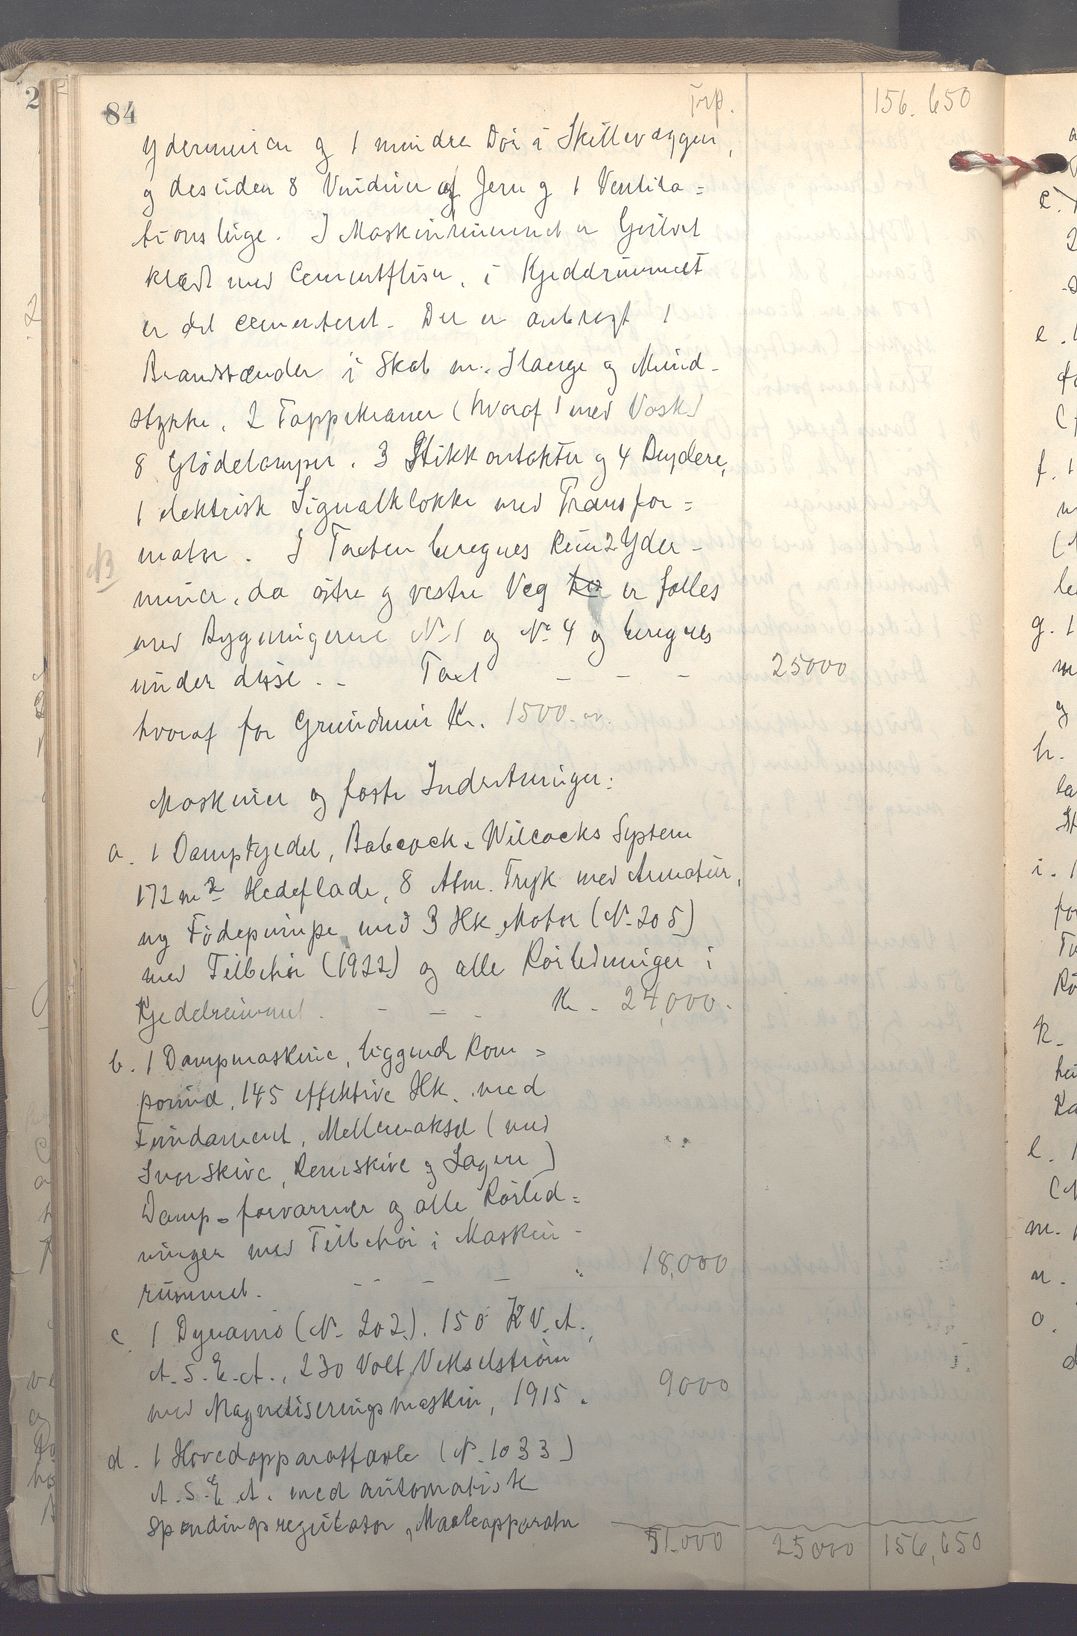 84
Trp. 156.650
Ydermuren og 1 mindre Dør i Skillevæggen,
og desuden 8 Vinduer af Jern og 1 Ventila=
tionsluge. I Maskinrummet er Gulvet
klædt med Cementfliser, i Kjedelrummet
er det cementeret. Der er anbragt 1
Brandstænder i Skab m. Slange og Mund-
stykke, 2 Tappekraner (hvoraf 1 med Vask)
8 Glødelamper, 3 Stikkontakter og 4 Brydere,
1 elektrisk Signalklokke med Transfor=
mator. I Taxten beregnes kun 2 Yder-
NB
murer, da østre og vestre Veg er fælles
med Bygningerne No 1 og No 4 og beregnes
under disse. - Taxt - - - 25000
hvoraf for Grundmur Kr. 1500.
Maskiner og faste Indretninger:
a. 1 Dampkjedel, Babcock & Wilcocks System
172 m2 Hedeflade, 8 Atm. Tryk med Armatur,
ny Fødepumpe med 3 Hk. Motor (No 205)
med Tilbehør (1922) og alle Rørledninger i
Kjedelrummet. - - - Kr. 24,000.-
b. 1 Dampmaskine, liggende Kom=
pound, 145 effektive Hk. med
Fundament, Mellemaksel (med
Svorskive, Remskive og Lagere)
Damp-forvarmer og alle Rørled=
ninger med Tilbehør i Maskin-
rummet. - - - - " 18,000
c. 1 Dynamo (No 202). 150 K.V.A.,
A.S.E.A., 230 Volt Vekselstrøm
med Magnetiseringsmaskin, 1915. 9000
d. 1 Hovedapparattavle (No 1033)
A.S.E.A. med automatisk
Spændingsregulator, Maaleapparater
51.000 25000 156,650